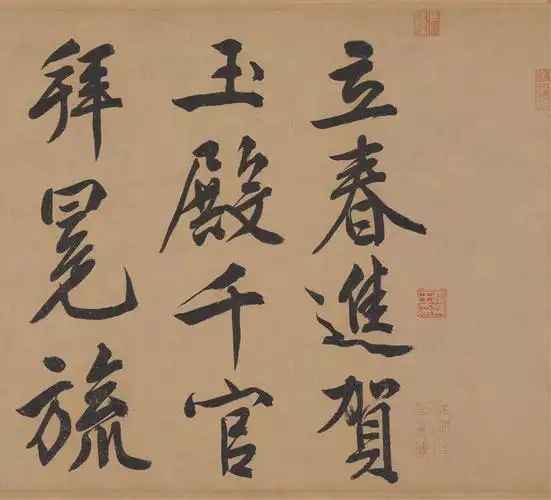 立春進賀
玉殿千官
拜冕旒